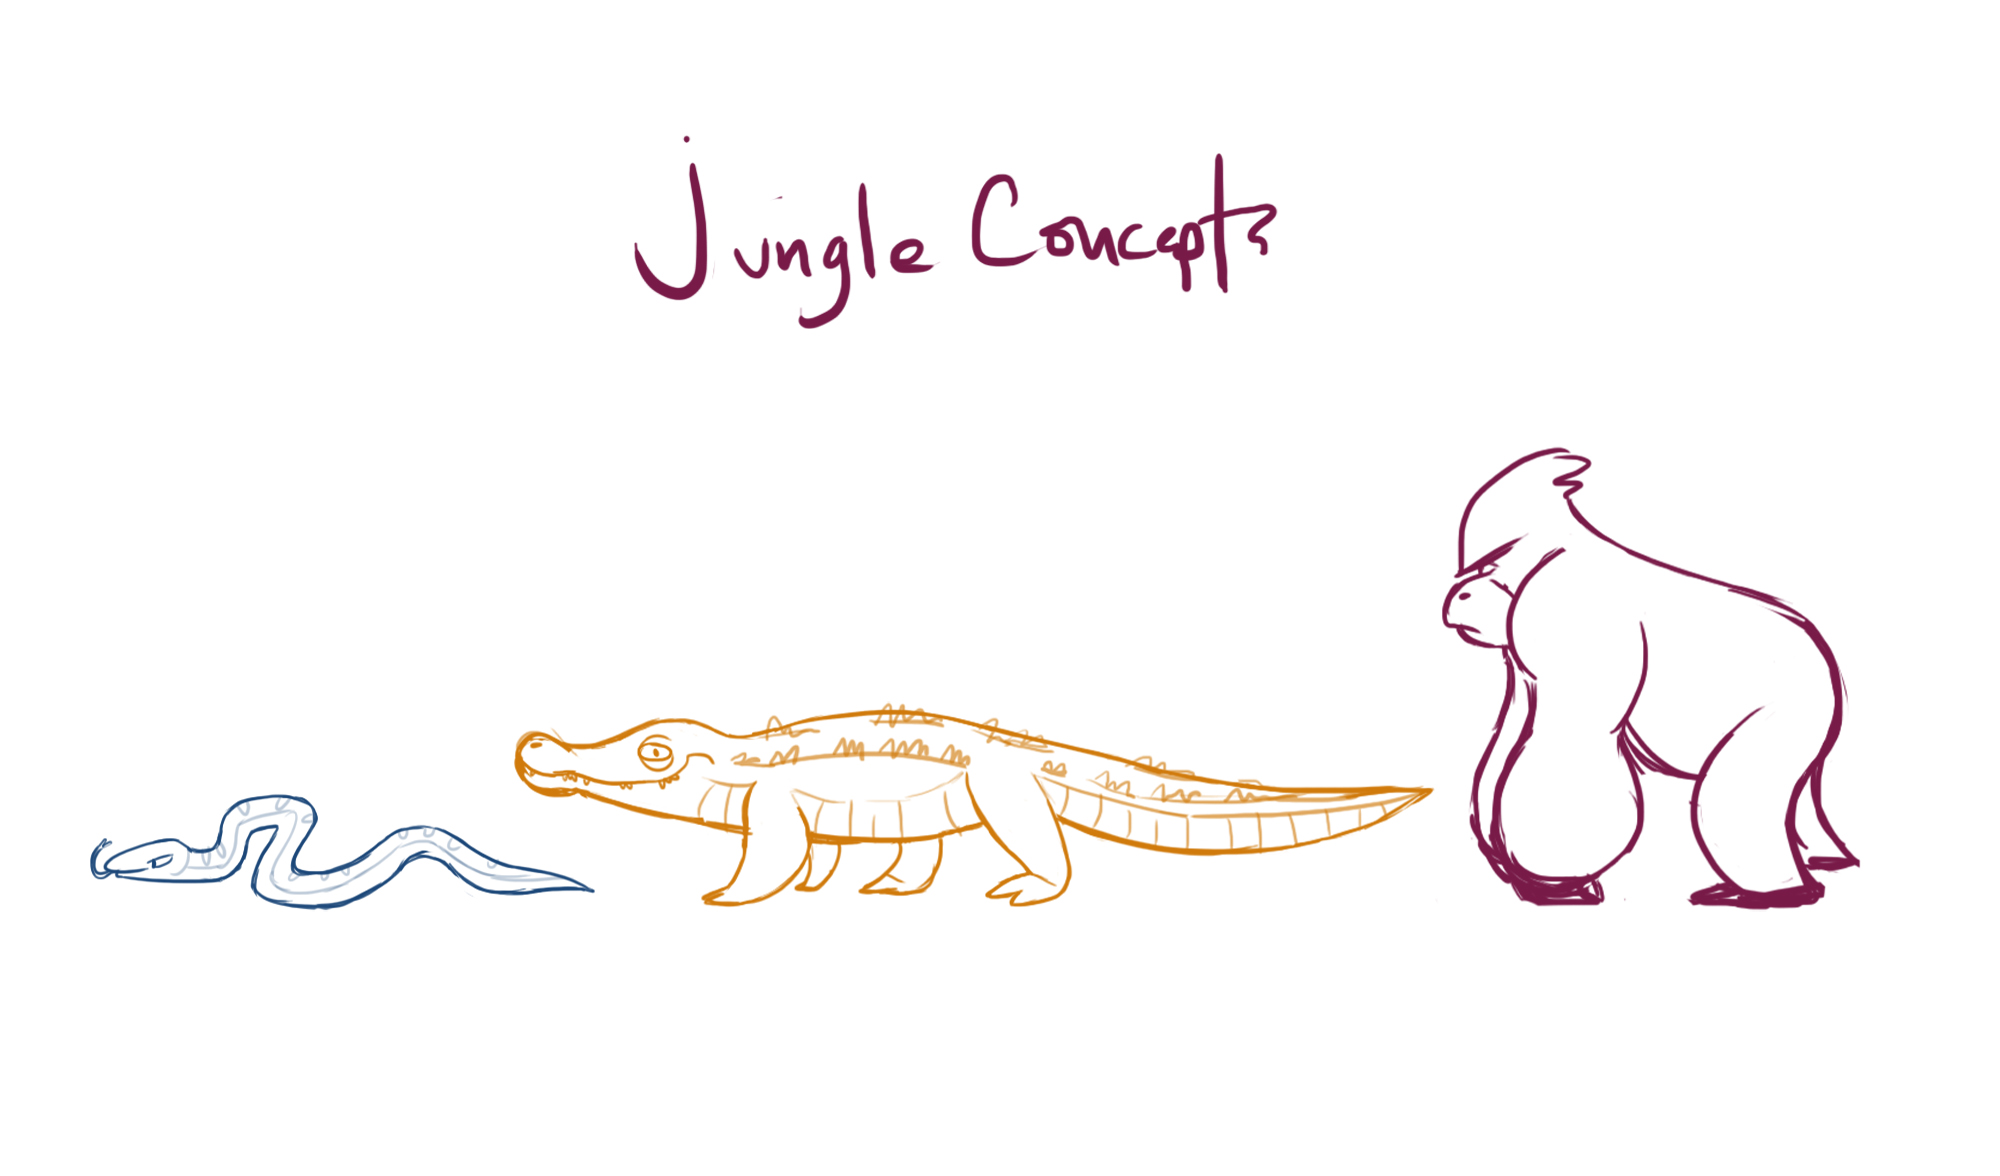 Jungle Concepts